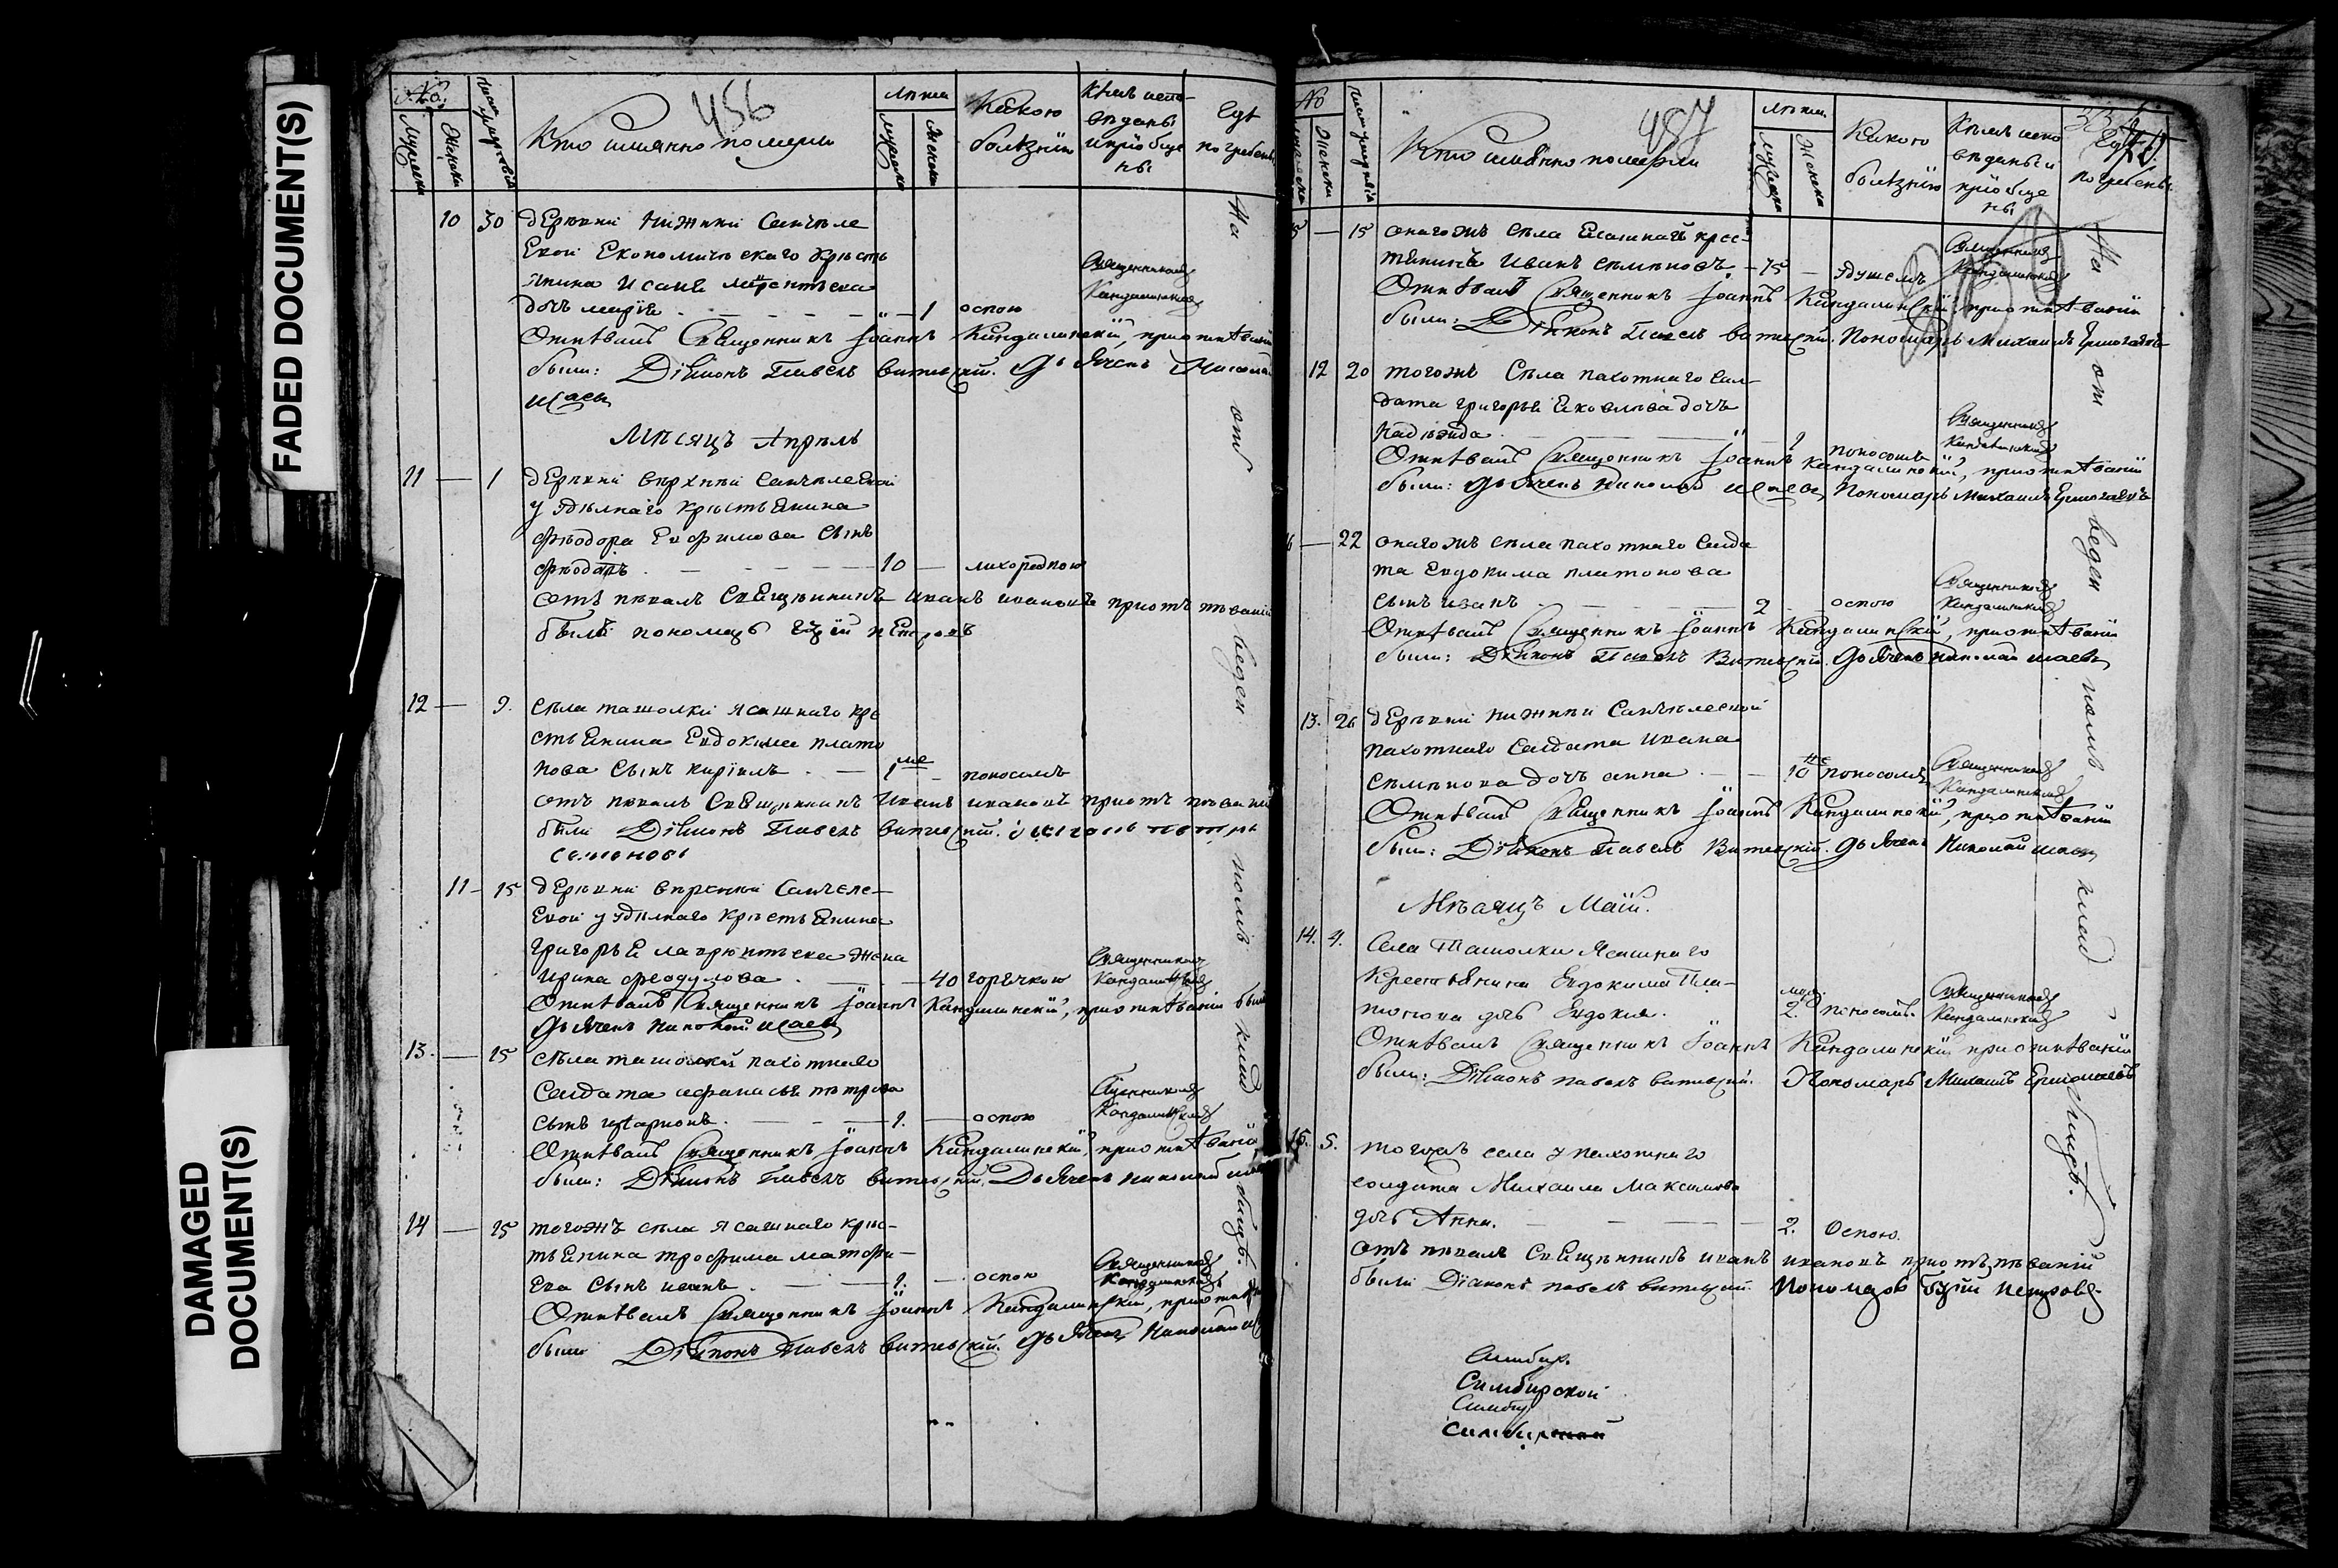 FADED DOCUMENT(S)
DAMAGED
DOCUMENT(S)
456
№
Мужеска
Женска
Кто имянно померли
лѣта
мужеска
женска
Какою
болѣзнію
Кѣмъ испо-
вѣданы
и пріобще
ны
Гдѣ
погребены
10 30 деревни нижний Санчеле
Евой Економическаго кресть
янина Исаия
дочь марiя 1 оспою
Священником
Кандалинским
Отпѣвалъ Священникъ Iоаннъ Кандалинскiй, при отпѣванiи
были: Дiаконъ Павелъ Витевскiй. Дьячекъ Николай
Исаевъ
Мѣсяцъ Апрель
11 — 1 деревни верхний Санчелеевой
удельнаго крестьянина
Феодора Ефимова сынъ
Феодоръ 10 — лихорадкою
отъ певалъ Священникъ Иванъ Ивановъ при отъ певании
были пономарь Петровъ
12 — 9. села ташолки ясашнаго кре
стьянина Евдокима плато
нова сынъ кирилъ 1 ме поносомъ
отъ певалъ Священникъ Иванъ Ивановъ при отъ певании
были Дiаконъ Павелъ Витевскiй.
Семеновъ
11 — 15 деревни верхней Санчеле-
Евой удельнаго крестьянина
Григорья лаврентьева жена
Ирина феодулова 40 горячкою
Священником
Кандалинским
Отпѣвалъ Священникъ Iоаннъ Кандалинскiй, при отпѣванiи были
Дьячекъ Николай Исаевъ
13. — 15 села ташолки пахотнаго
Салдата афанасья петрова
сынъ иларионъ 1. — оспою
Кандалинским
Отпѣвалъ Священникъ Iоаннъ Кандалинскiй, при отпѣванiи
были: Дiаконъ Павелъ Витевскiй. Дьячекъ Николай
14 — 15 тогожъ села ясашнаго крес-
тьянина трофима матфи-
ева сынъ иванъ 1. — оспою
Священником
Кандалинским
Отпѣвалъ Священникъ Iоаннъ Кандалинскiй, при
были Дiаконъ Павелъ Витевскiй. Дьячекъ Николай
На отведен номъ клад бищѣ.
457
№
Женска
Кто имянно померли
лѣта
мужеска
женска
Какою
болѣзнiю
Кѣмъ испо
вѣданы и
прiобще
ны
погребены
15 — 15 онагожъ села Ясашнай крес-
тянинъ Иванъ Семеновъ — 75 — удушьемъ
Священником
Кандалинским
Отпѣвалъ Священникъ Iоаннъ Кандалинскiй, при отпѣванiи
были: Дiаконъ Павелъ Витевскiй. Пономарь Михаилъ Ермолаевъ
12 20 тогожъ Села пахотнаго сал-
дата григорья Яковлева дочь
надежда 1 поносомъ
Священником
Кандалинским
Отпѣвалъ Священникъ Iоаннъ Кандалинскiй, при отпѣванiи
были: Дьячекъ Николай Исаевъ Пономарь Михаилъ Ермолаевъ
16 — 22 онагожъ села пахотнаго Салда
та Евдокима платонова
сынъ иванъ 2 оспою
Священником
Кандалинским
Отпѣвалъ Священникъ Iоаннъ Кандалинскiй, при отпѣванiи
были: Дiаконъ Павелъ Витевскiй. Дьячекъ Николай Исаевъ
13. 26 деревни нижней Санчелеевой
пахотнаго Салдата Ивана
Семенова дочь анна 10 не поносомъ
Священником
Кандалинским
Отпѣвалъ Священникъ Iоаннъ Кандалинскiй, при отпѣванiи
были: Дiаконъ Павелъ Витевскiй. Дьячекъ Николай Исаевъ
Мѣсяцъ Маiй.
14. 4. Села Ташолки Ясашнаго
Крестьянина Евдокима Пла-
тонова дочь Евдокия. 2. поносомъ.
Священником
Кандалинским
Отпѣвалъ Священникъ Iоаннъ Кандалинскiй при отпѣванiи
были: Дiаконъ павелъ Витевскiй. Пономарь Михаилъ Ермолаевъ
15. 5. тогожъ села у пахотнаго
солдата Михаила Максимова
дочь Анна. 2. Оспою.
отъ певалъ Священникъ иванъ ивановъ при отъ певании
были Дiаконъ павелъ витевский. Пономарь Петровъ
На от веден номъ клад бищѣ.
Симбир.
Симбирской
Симбир
Симбирской